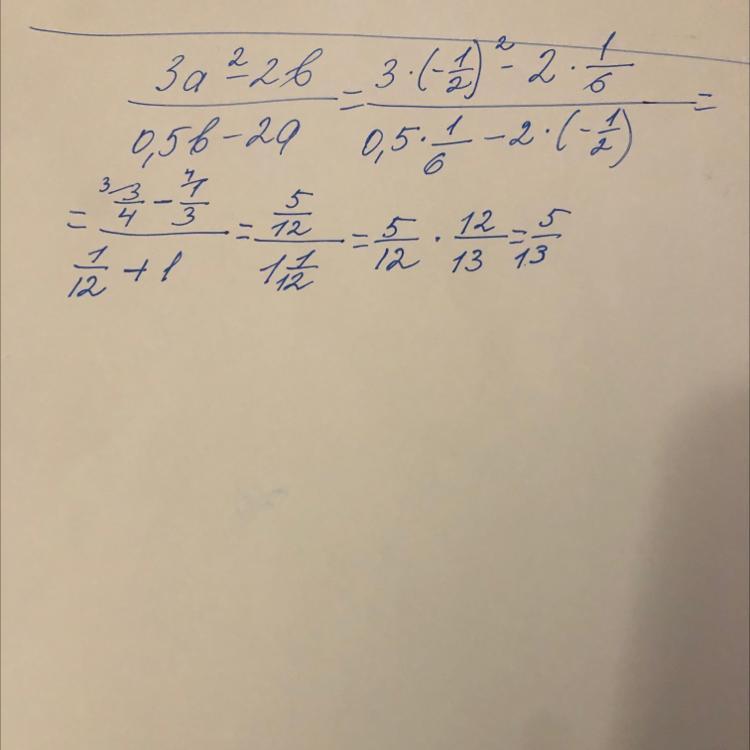 (3a² - 2b)/(0,5b - 2a) = (3 · (-1/2)² - 2 · 1/6)/(0,5 · 1/6 - 2 · (-1/2)) =
= (³3/4 - ⁴1/3)/(1/12 + 1) = (5/12)/(1 1/12) = 5/12 · 12/13 = 5/13